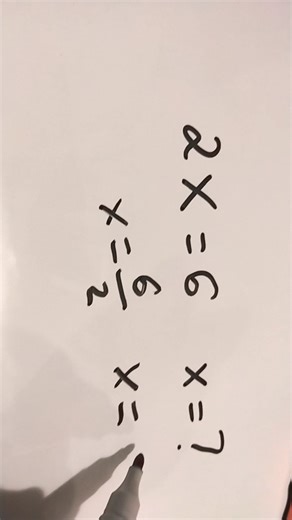 2x = 6 x = ?
x = 6/2 x =